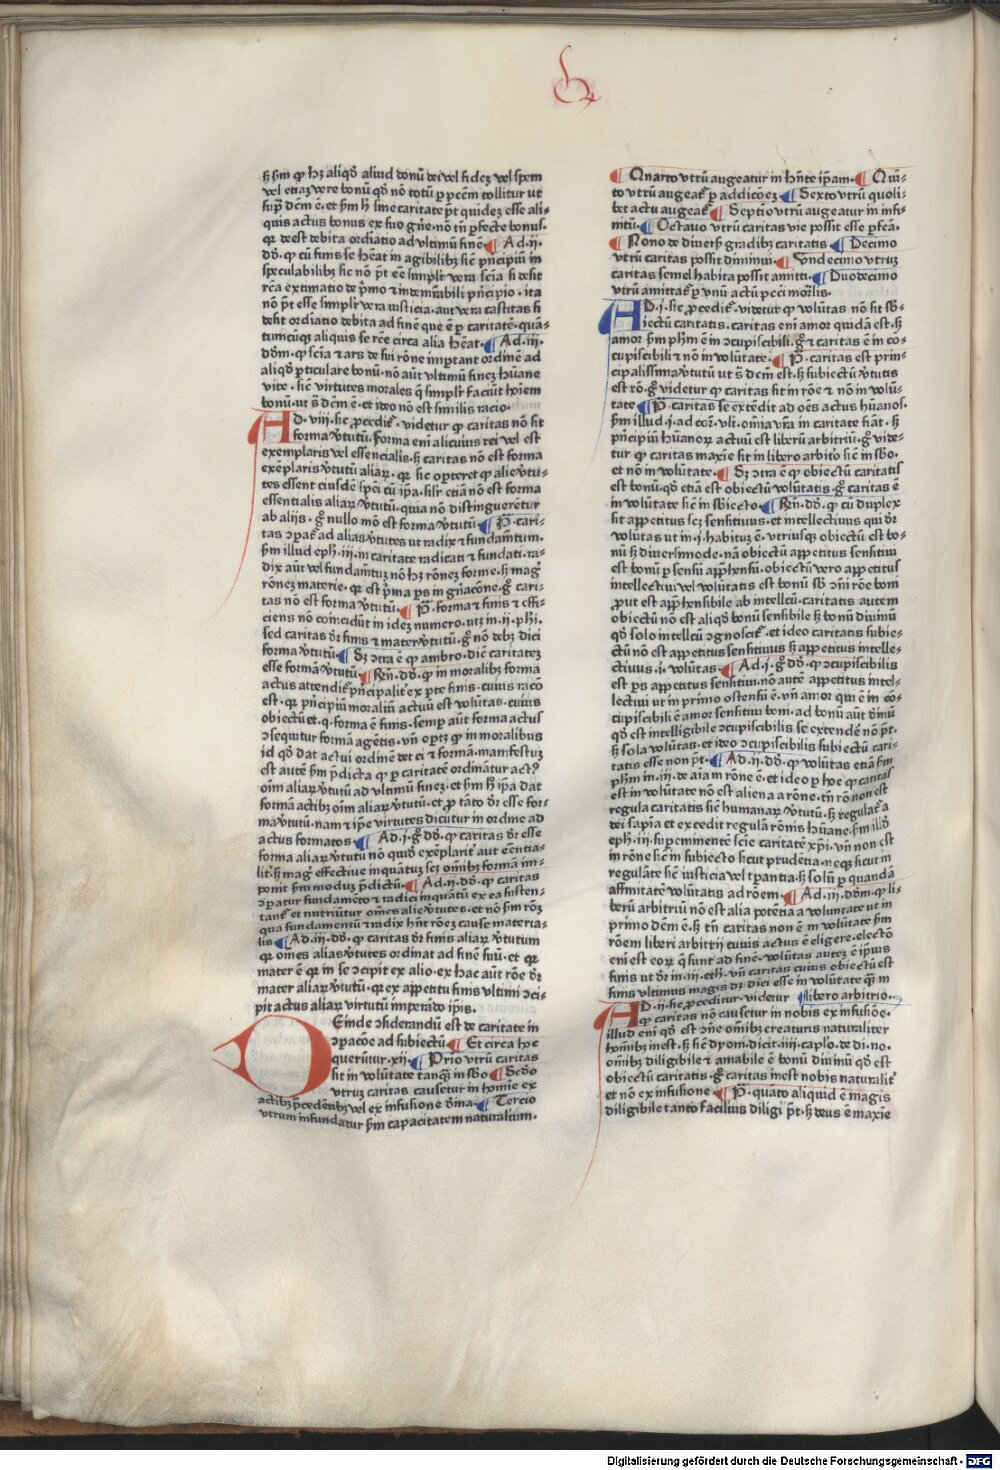 ꝙ hꝫ aliqđ aliud bonū dei vel fidez vel spem
vel etiaz vere bonū qđ nō totū ꝑ pccm̄ tollitur ut
quis actus bonus ex suo gn̄e nō tn̄ ꝑfecte bonus.
qꝛ deest debita ordiatio ad vltimū finē ¶ Ad.ij.
speculabilibꝫ sic nō pt̄ eē simplr̄ vera scīa si desit
nō pt̄ esse simplr̄ vera iusticia aut vera castitas si
desit ordīatio debita ad finē que ē ꝑ caritatē quā-
tumcūqꝫ aliquis se rc̄e circa alia hēat. ¶ Ad.iij.
dōm. ꝙ scīa ⁊ ars de sui rōne important ordinē ad
aliqđ ꝑticulare bonū. nō aūt vltimū finez hūane
vite. sic̄ virtutes morales q̄ simplr̄ faciūt hoīem
bonū. ut s̄ dcm̄ ē. et ideo nō est similis racio.
AD. viij. sic ꝓcedit᷑. videtur ꝙ caritas nō sit
forma v̓tutū. forma enī alicuius rei vel est
exemplaris vel essencialis. sꝫ caritas nō est forma
exēplaris v̓tutū aliaꝝ. qꝛ sic oporteret ꝙ alie v̓tu-
tes essent eiusdē speci cū ip̄a. silr̄ etiā nō est forma
essentialis aliaꝝ v̓tutū. quia nō distingueretur
ab alijs. gͦ nullo mō est forma v̓tutū ¶ P̄. cari-
tas ↄpat᷑ ad alias v̓tutes ut radix ⁊ fundam̄tum.
ẜm illud eph. iij. in caritate radicati ⁊ fundati. ra-
dix aūt vel fundam̄tuz nō hꝫ rōnez forme. sꝫ mag̓
rōnez materie. qꝛ est p̄ma ps̄ in gn̄acōne. gͦ cari-
tas nō est forma v̓tutū. ¶ P̄. forma ⁊ finis ⁊ effi-
ciens nō coincidūt in idez numero. utꝫ in.ij. phi.
sed caritas dr̄ finis ⁊ mater v̓tutū. gͦ nō debꝫ dici
forma v̓tutū ¶ Sꝫ ↄtra ē ꝙ ambro. dic̄ caritatez
esse formā v̓tutū ¶ Rn̄. dō. ꝙ in moralibꝫ forma
actus attendit᷑ pn̄cipalit᷑ ex pte finis. cuius racō
est. qꝛ pn̄cipiū moraliū actuū est volūtas. cuius
obiectū et. q. forma ē finis. semꝑ aūt forma actus
ↄsequitur formā agētis. vn̄ oꝑtꝫ ꝙ in moralibus
id qđ dat actui ordinē det ei ⁊ formā. manifestuz
est autē ẜm p̄dicta ꝙ ꝑ caritatē ordinātur actꝰ
oīm aliaꝝ v̓tutū ad vltimū finez. et ẜm hͦ ip̄a dat
formā actibꝫ oīm aliaꝝ v̓tutū. et ꝓ tāto dr̄ esse for-
ma v̓tutū. nam ⁊ ip̄e virtutes dicūtur in ordīe ad
actus formatos ¶ Ad.j. gͦ dō. ꝙ caritas dr̄ esse
forma aliaꝝ v̓tutū nō quidē exēplarit᷑ aut eēntia-
lit᷑. sꝫ mag̓ effective inquātuꝫ scꝫ omībꝫ formā im-
ponit ẜm moduꝫ p̄dictū. ¶ Ad.ij. dō. ꝙ caritas
ↄpatur fundamēto ⁊ radici inquātū ex ea susten-
tant᷑ et nutriūtur omēs alie v̓tutes. et nō ẜm rōꝫ
qua fundamentū ⁊ radix hn̄t rōez cause materia-
lis ¶ Ad.iij. dō. ꝙ caritas dr̄ finis aliaꝝ v̓tutum
qꝛ omēs alias v̓tutes ordinat ad finē suū. et qꝛ
mater ē qꝛ in se ↄcipit ex alio. ex hac aūt rōe dr̄
mater aliaꝝ v̓tutū. qꝛ ex appetitu finis vltimi ↄci-
pit actus aliaꝝ virtutū imperādo ip̄is.
DEinde ↄsiderandū est de caritate in
ↄpacōe ad subiectū ¶ Et circa hoc
querūtur. xij. ¶ Prīo vtrū caritas
sit in volūtate tanqꝫ in sb̄o ¶ Scd̄o
vtruꝫ caritas causetur in homīe ex
actibꝫ p̄cedētibꝫ vel ex infusione dīna. ¶ Tercio
vtrum infundatur ẜm capacitatem naturalium.
¶ Quarto vtrū augeatur in hn̄te ip̄am. ¶ Quī-
to vtrū augeat᷑ ꝑ addicōez ¶ Sexto vtrū quoli-
bet actu augeat᷑ ¶ Septīo vtrū augeatur in infi-
nitū. ¶ Octauo vtrū caritas vie possit esse ꝑfcā.
¶ Nono de diuersꝭ gradibꝫ caritatis ¶ Decimo
vtrū caritas possit diminui. ¶ Vndecimo vtruꝫ
caritas semel habita possit amitti. ¶ Duodecimo
vtrū amittat᷑ ꝑ vnū actū pccī mōrlis.
AD.j. sic ꝓcedit᷑. videtur ꝙ volūtas nō sit sb̄-
iectū caritatis. caritas enī amor quidā est. sꝫ
amor ẜm phm̄ ē in ↄcupiscibili. gͦ ⁊ caritas ē in cō-
cupiscibili ⁊ nō in volūtate. ¶ P̄. caritas est prin-
cipalissima v̓tutū ut s̄ dcm̄ est. sꝫ subiectū v̓tutis
est rō. gͦ videtur ꝙ caritas sit in rōe ⁊ nō in volū-
tate ¶ P̄. caritas se extēdit ad oēs actus hūanos.
ẜm illud.j. ad cor. vlt. omīa vr̄a in caritate fiāt. sꝫ
pn̄cipiū hūanoꝝ actuū est liberū arbitriū. gͦ vide-
tur ꝙ caritas maxie sit in libero arbitō sic̄ in sb̄o.
et nō in volūtate. ¶ Sꝫ ↄtra ē ꝙ obiectū caritatis
est bonū. qđ etiā est obiectū volūtatis. gͦ caritas ē
in volūtate sic̄ in sb̄iecto ¶ Rn̄. dō. ꝙ cū duplex
sit appetitus scꝫ sensitiuus. et intellectiuus qui dr̄
volūtas ut in.j. habituꝫ ē. vtriusqꝫ obiectū est bo-
nū sꝫ diuersimode. nā obiectū appetitus sensitiui
est bonū ꝑ sensū app̄hensū. obiectū vero appetitus
intellectiui vel volūtatis est bonū sb̄ ↄmī rōe boni
ꝓut est app̄hensibile ab intellcū. caritatis autem
obiectū nō est aliqđ bonū sensibile sꝫ bonū diuinū
qđ solo intellcū ↄgnoscit᷑. et ideo caritatis subie-
ctū nō est appetitus sensitiuus sꝫ appetitus intelle-
ctiuus. i. volūtas. ¶ Ad.j. gͦ dō. ꝙ ↄcupiscibilis
est ps̄ appetitus sensitiui. nō autē appetitus intel-
lectiui ut in primo ostensū ē. vn̄ amor qui ē in cō-
cupiscibili ē amor sensitiui boni. ad bonū aūt diīnū
qđ est intelligibile ↄcupiscibilis se extendē nō pt̄.
sꝫ sola volūtas. et ideo ↄcupiscibilis subiectū cari-
tatis esse non pt̄. ¶ Ad.ij. dō. ꝙ volūtas etiā ẜm
phm̄ in.iij. de aīa in rōne ē. et ideo ꝑ hoc ꝙ caritas
est in volūtate nō est aliena a rōne. tn̄ rō non est
regula caritatis sic̄ humanaꝝ v̓tutū. sꝫ regulat᷑ a
dei sapīa et excedit regulā rōnis hūane. ẜm illđ
eph. iij. supeminentē sciē caritatē xp̄i. vn̄ non est
in rōne sic̄ in subiecto sicut prudētia. neqꝫ sicut in
regulāte sic̄ iusticia vel tꝑantia. sꝫ solū ꝑ quandā
affinitatē volūtatis ad rōem. ¶ Ad.iij. dōm. ꝙ li-
berū arbitriū nō est alia potētia a voluntate ut in
primo dcm̄ ē. sꝫ tn̄ caritas non ē in volūtate ẜm
rōem liberi arbitrij cuius actus ē eligere. electō
enī est eoꝝ q̄ sunt ad finē. volūtas autez ē ip̄ius
finis ut dr̄ in.iij. eth. vn̄ caritas cuius obiectū est
finis vltimus magis dꝫ dici esse in volūtate qꝫ in
libero arbitrio.
AD.ij. sic ꝓceditur. videtur
ꝙ caritas nō causetur in nobis ex infusiōe.
illud enī qđ est ↄmē omībꝫ creaturis naturaliter
homībꝫ inest. sꝫ sic̄ dyoni. dicit. iiij. caplo. de di. no.
omībꝫ diligibile ⁊ amabile ē bonū diuinū qđ est
obiectū caritatis. gͦ caritas inest nobis naturalit᷑
et nō ex infusione ¶ P̄. quāto aliquid ē magis
diligibile tanto facilius diligi pt̄. sꝫ deus ē maxie